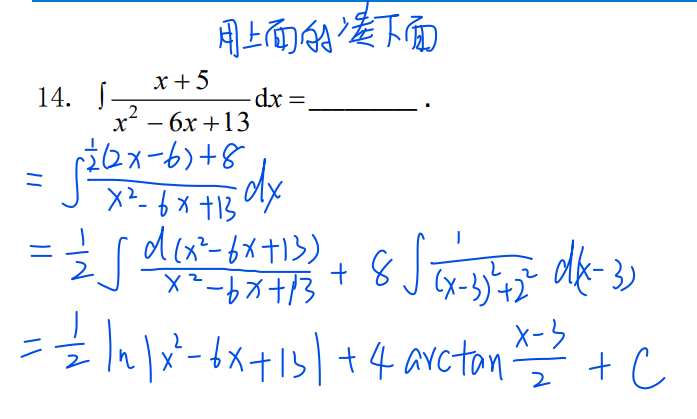 用上面的凑下面
14. ∫ (x+5)/(x² − 6x+13) dx = ________ .
= ∫ (½(2x−6)+8)/(x²−6x+13) dx
= ½ ∫ d(x²−6x+13)/(x²−6x+13) + 8 ∫ 1/((x−3)²+2²) d(x−3)
= ½ ln|x²−6x+13| + 4 arctan (x−3)/2 + C